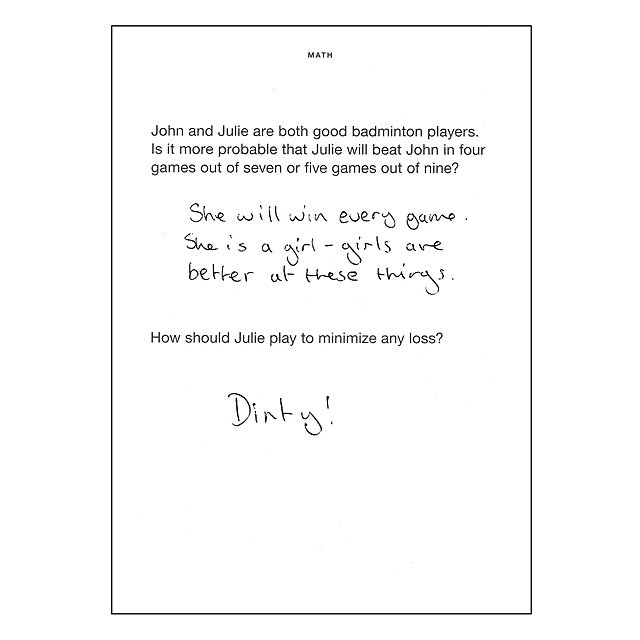 MATH
John and Julie are both good badminton players.
Is it more probable that Julie will beat John in four
games out of seven or five games out of nine?
She will win every game.
She is a girl - girls are
better at these things.
How should Julie play to minimize any loss?
Dirty!